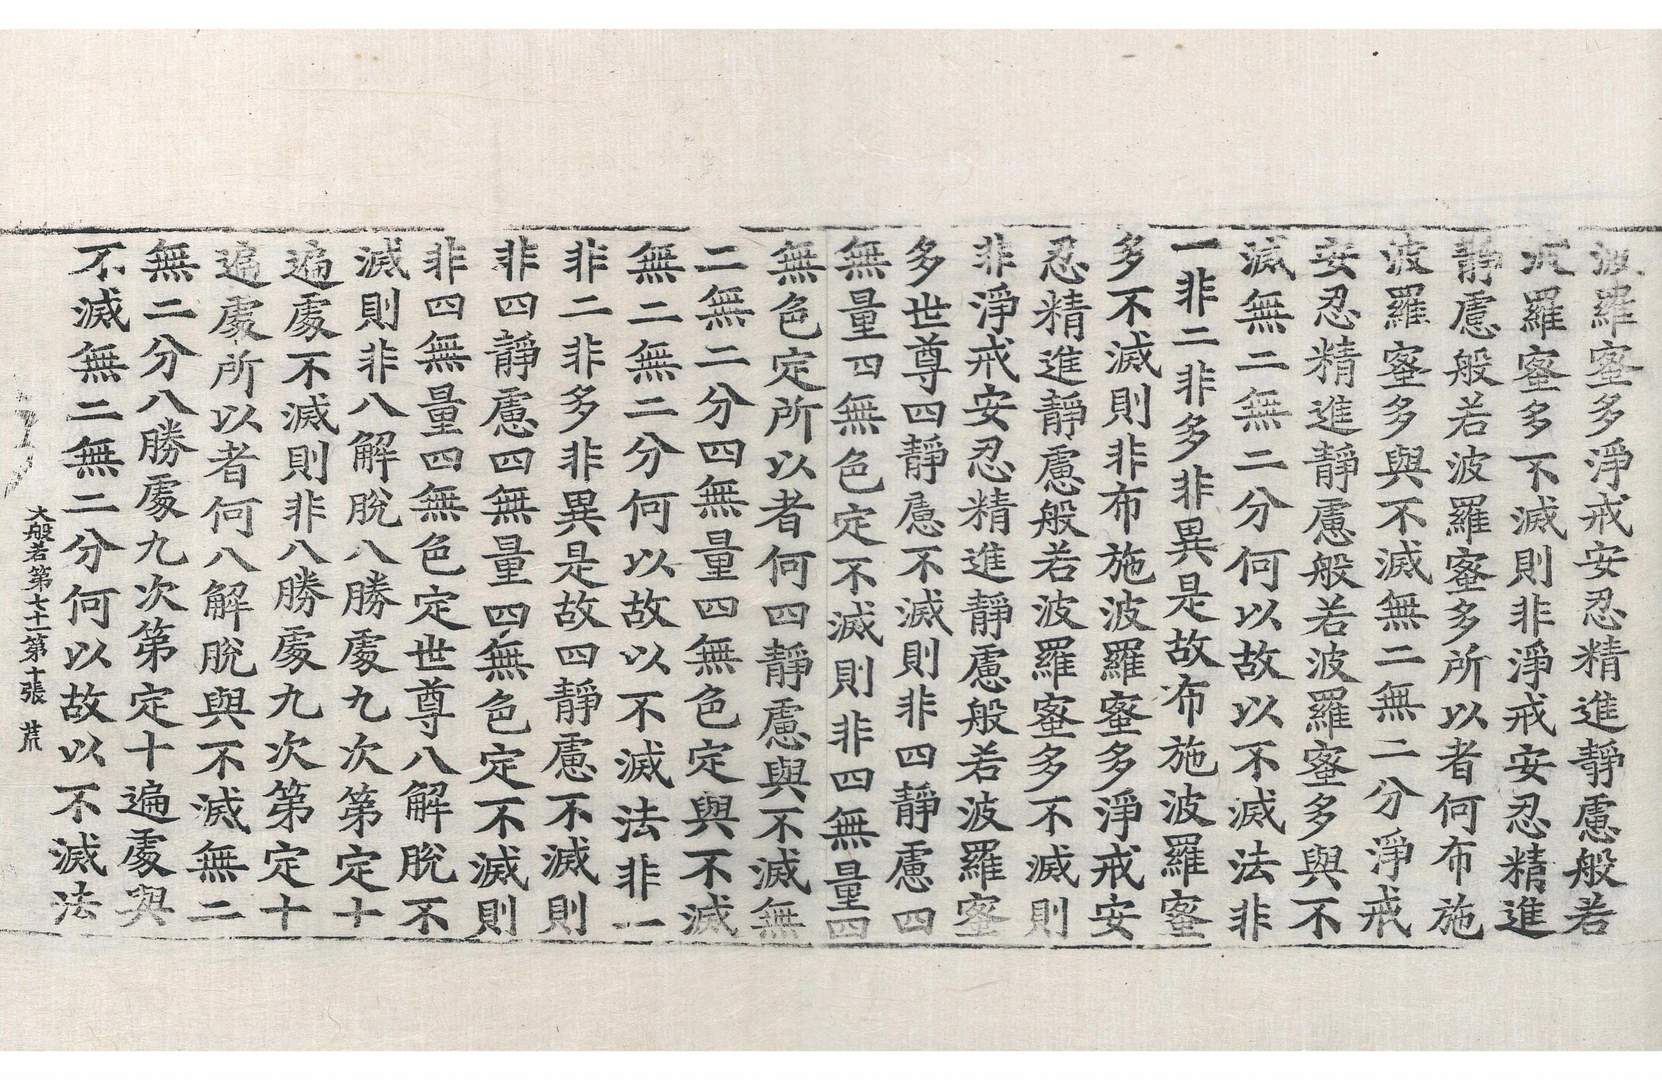 波羅蜜多淨戒安忍精進靜慮般若
波羅蜜多不滅則非淨戒安忍精進
靜慮般若波羅蜜多所以者何布施
波羅蜜多與不滅無二無二分淨戒
安忍精進靜慮般若波羅蜜多與不
滅無二無二分何以故以不滅法非
一非二非多非異是故布施波羅蜜
多不滅則非布施波羅蜜多淨戒安
忍精進靜慮般若波羅蜜多不滅則
非淨戒安忍精進靜慮般若波羅蜜
多世尊四靜慮不滅則非四靜慮四
無量四無色定不滅則非四無量四
無色定所以者何四靜慮與不滅無
二無二分四無量四無色定與不滅
無二無二分何以故以不滅法非一
非二非多非異是故四靜慮不滅則
非四靜慮四無量四無色定不滅則
非四無量四無色定世尊八解脫不
滅則非八解脫八勝處九次第定十
遍處不滅則非八勝處九次第定十
遍處所以者何八解脫與不滅無二
無二分八勝處九次第定十遍處與
不滅無二無二分何以故以不滅法
大般若第七十一第十張 荒